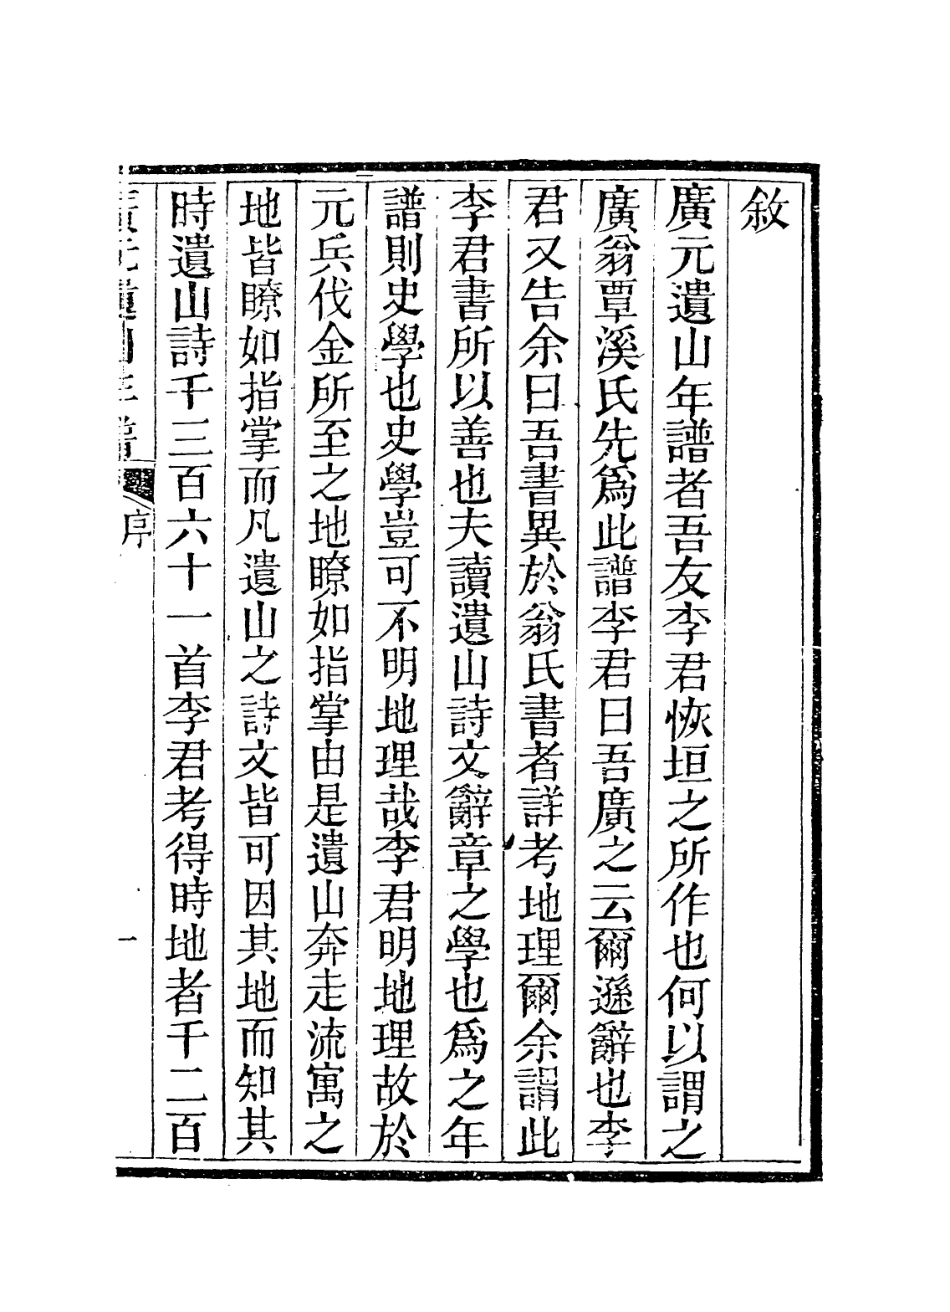 敘
廣元遺山年譜者吾友李君恢垣之所作也何以謂之
廣翁覃溪氏先爲此譜李君曰吾廣之云爾遜辭也李
君又告余曰吾書異於翁氏書者詳考地理爾余謂此
李君書所以善也夫讀遺山詩文辭章之學也爲之年
譜則史學也史學豈可不明地理哉李君明地理故於
元兵伐金所至之地瞭如指掌由是遺山奔走流寓之
地皆瞭如指掌而凡遺山之詩文皆可因其地而知其
時遺山詩千三百六十一首李君考得時地者千二百
廣元遺山年譜 序 一